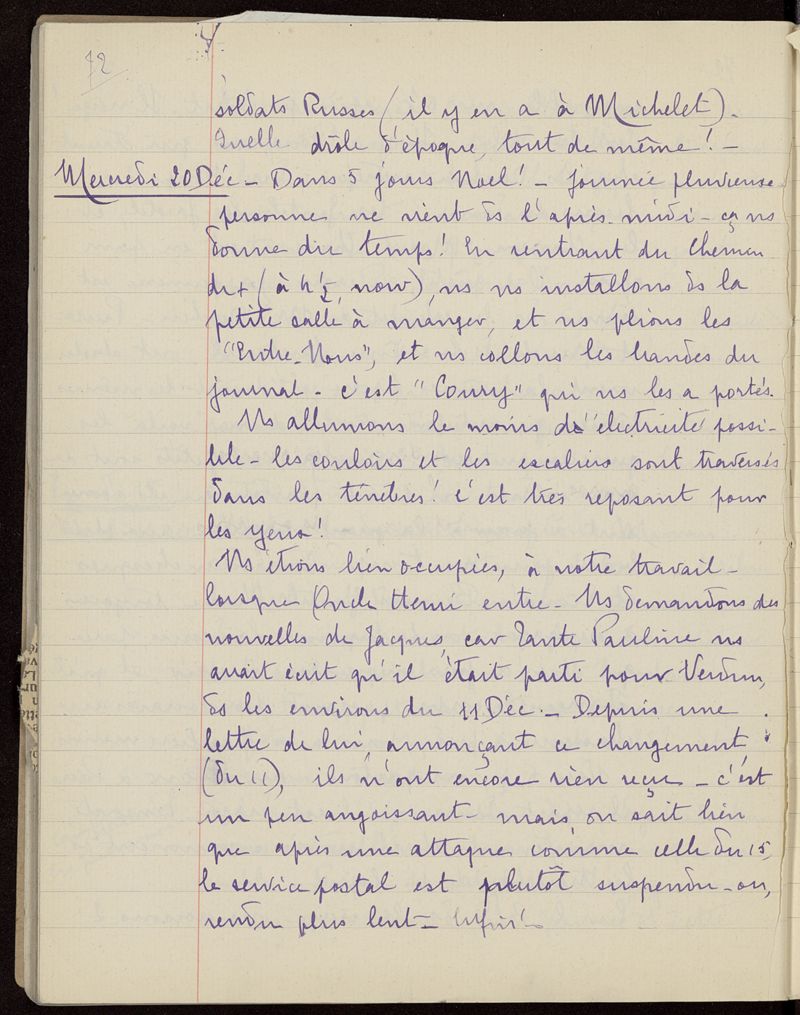 72
soldats Russes (il y en a à Michelet).
Quelle drôle d'époque, tout de même! -
Mercredi 20 Déc - Dans 5 jours Noel! - journée pluvieuse
personne ne vient ds l'après-midi - ça ns
donne du temps! En rentrant du chemin
du + (à 4h ½, now), ns ns installons ds la
petite salle à manger, et ns plions les
"Entre-Nous", et ns collons les bandes du
journal - c'est "Coury" qui ns les a portés.
Ns allumons le moins d'électricité possi-
ble - les couloirs et les escaliers sont traversés
dans les ténèbres! c'est très reposant pour
les yeux!
Ns étions bien occupées, à notre travail -
lorsque Oncle Henri entre - Ns demandons des
nouvelles de Jacques, car Tante Pauline ns
avait écrit qu'il était parti pour Verdun,
ds les environs du 11 Déc. - Depuis une
lettre de lui, annonçant ce changement
(du 11), ils n'ont encore rien reçu - c'est
un peu angoissant - mais on sait bien
que après une attaque comme celle du 15,
le service postal est plutôt suspendu - ou,
rendu plus lent - Enfin! -